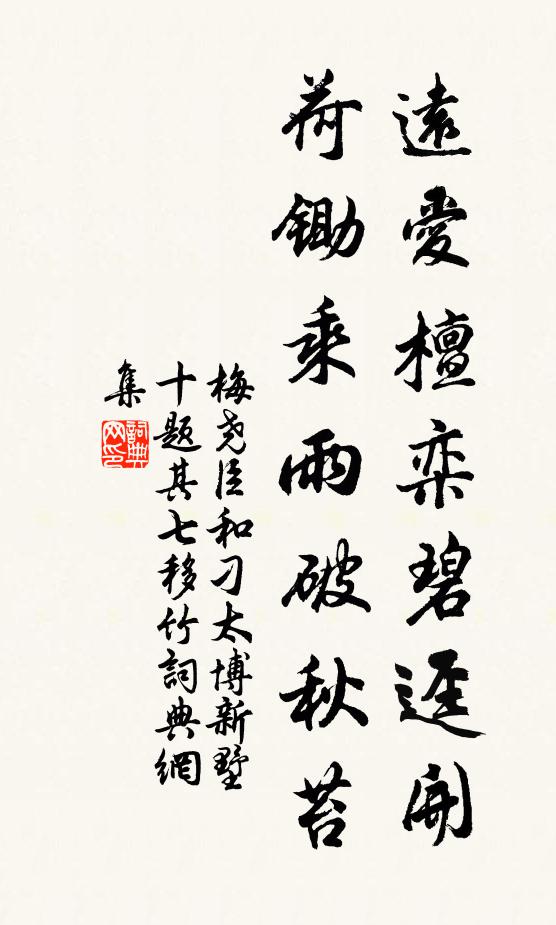 遠愛檀栾碧逕開
荷鋤乘雨破秋苔
梅尧臣和刁太博新墅
十题其七移竹詞典網
集
詞典网印